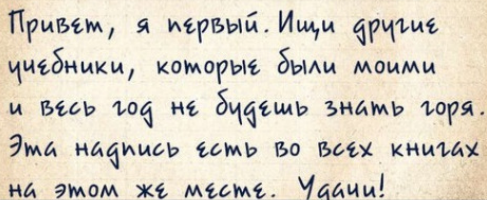 Привет, я первый. Ищи другие
учебники, которые были моими
и весь год не будешь знать горя.
Эта надпись есть во всех книгах
на этом же месте. Удачи!